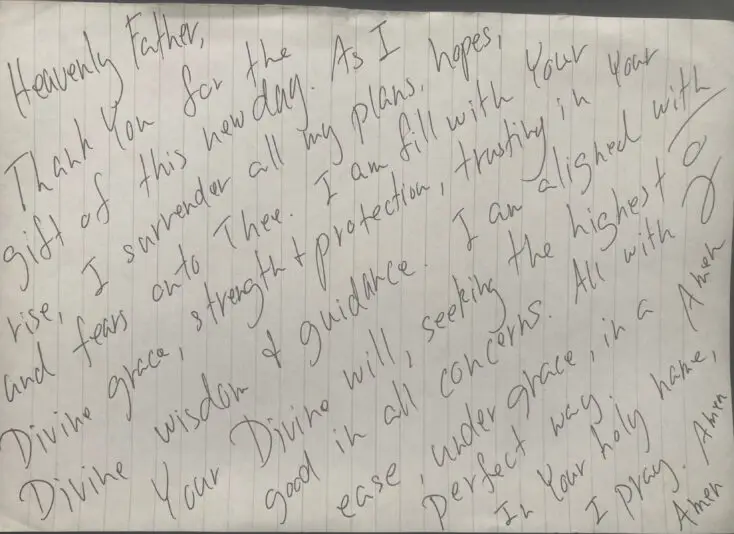 Heavenly Father,
Thank You for the
gift of this new day. As I
rise, I surrender all my plans, hopes,
and fears onto Thee. I am fill with Your
Divine grace, strength & protection, trusting in Your
Divine wisdom & guidance. I am alighed with
Your Divine will, seeking the highest
good in all concerns. All with
ease, under grace, in a
perfect way. Amen
In Your holy name,
I pray. Amen
Amen